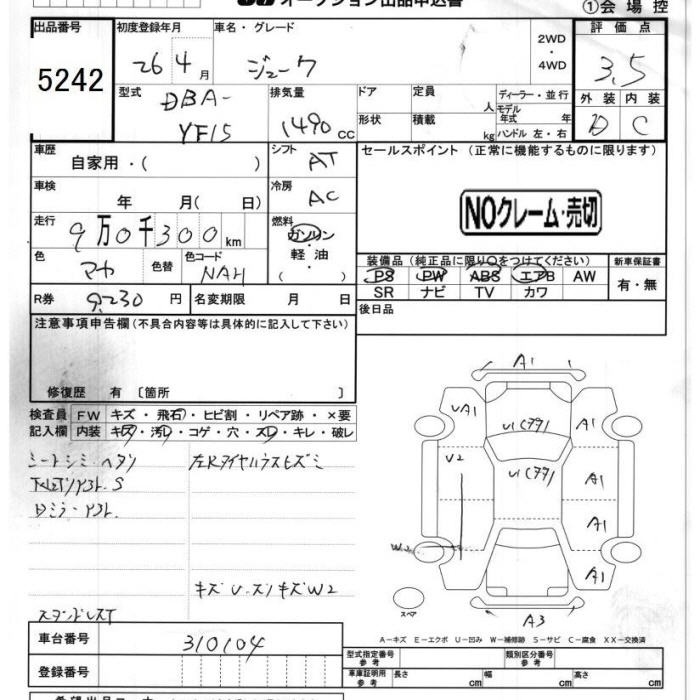 オークション出品申込書
①会場控
出品番号 5242
初度登録年月 26 4月
車名・グレード ジューク
2WD・4WD
評価点 3.5
外装 D 内装 C
型式 DBA-YF15
排気量 1490 cc
ドア 形状
定員 人
積載 kg
ディーラー・並行
モデル年式 年
ハンドル 左・右
車歴 自家用・( )
シフト AT
セールスポイント (正常に機能するものに限ります)
NOクレーム・売切
車検 年 月( 日)
冷房 AC
走行 9万0千300km
燃料 ガソリン・軽油・( )
色 色替 色コード NAH
装備品 (純正品に限り○をつけてください)
PS PW ABS エアB AW
SR ナビ TV カワ
新車保証書 有・無
R券 9,230円
名変期限 月 日
後日品
注意事項申告欄 (不具合内容等は具体的に記入して下さい)
修復歴 有 〔箇所 〕
検査員記入欄
FW キズ・飛石・ヒビ割・リペア跡・×要
内装 キズ・汚レ・コゲ・穴・スレ・キレ・破レ
シートシミ・ヘタリ
左Rタイヤハウスヒズミ
Dミラー
キズ U・ズリキズW2
A1
UA1
U1(77)
U2
U1(77)
A1
A1
W2
A1
A3
スペア
A－キズ E－エクボ U－凹み W－補修跡 S－サビ C－腐食 XX－交換済
車台番号 310104
登録番号
型式指定番号 参考
類別区分番号 参考
車庫証明用 参考 長さ cm 幅 cm 高さ cm